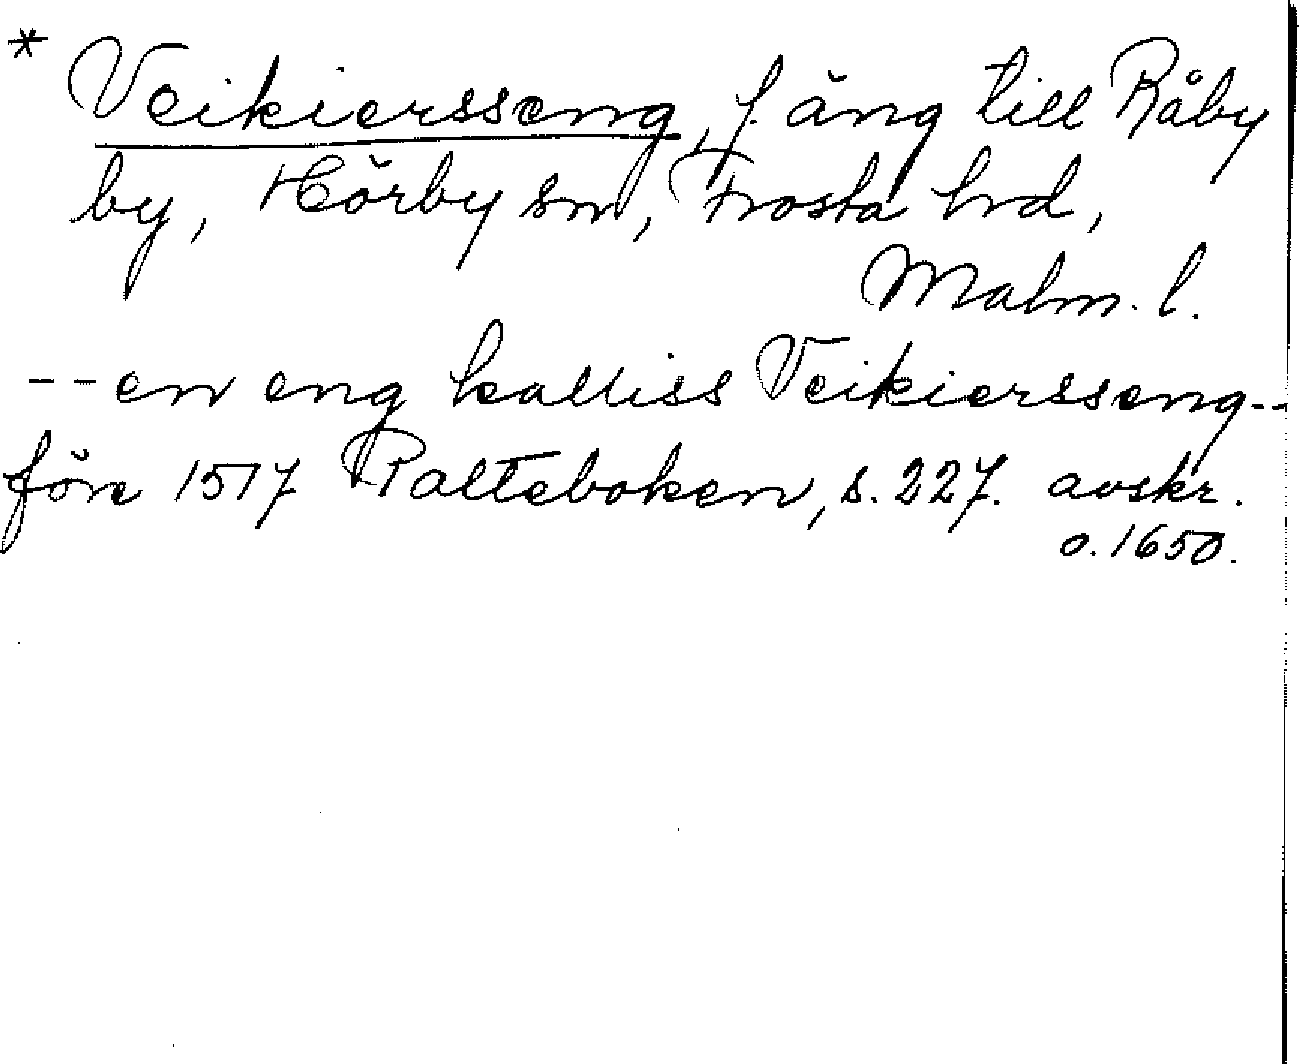 * Veikiersseng, f. äng till Råby
by, Hörby sn, Frosta hd,
Malm. l.
-- en eng kalliss Veikiersseng --
före 1517 Palteboken, s. 227. avskr.
o. 1650.